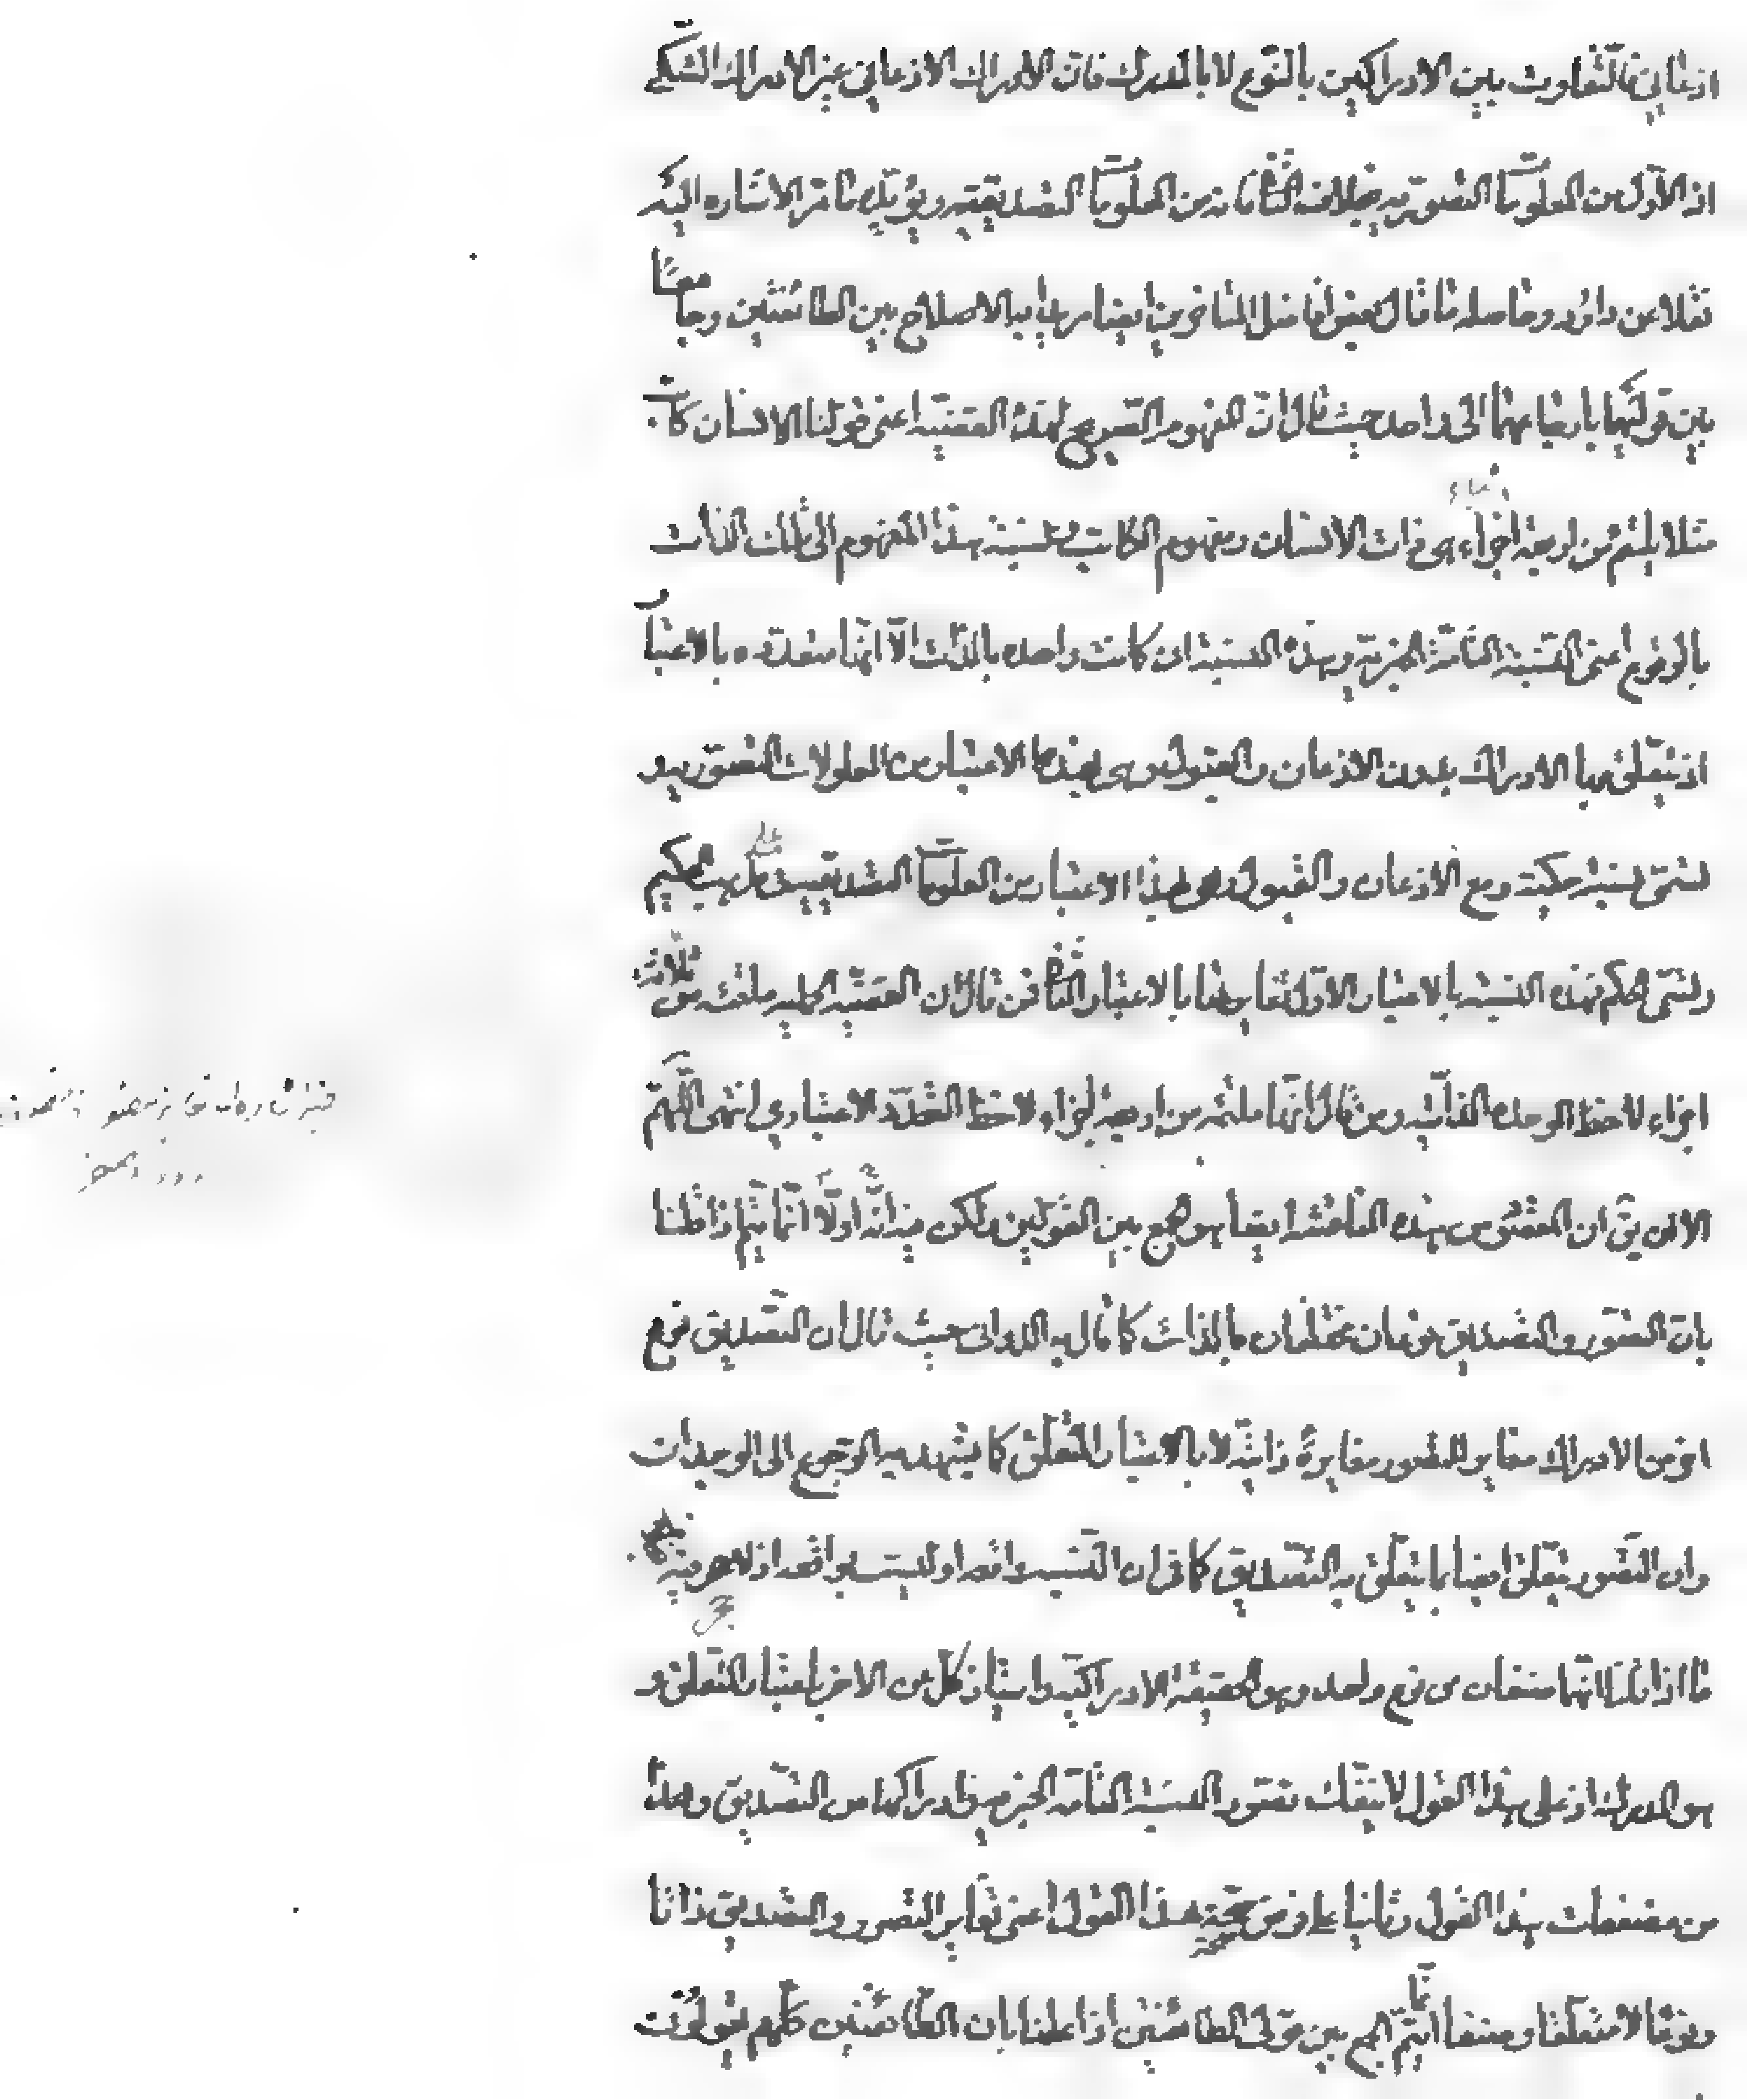 اذعاني فالتفاوت بين الادراكين بالنوع لا بالمدرك فان الادراك الاذعاني غير الادراك الشكي
اذ الاول من المعلومات التصورية بخلاف الثاني فانه من المعلومات التصديقية ويؤيد ما مر الاشارة اليه
نقلا عن داود وحاصله ما قال بعض افاضل المتاخرين ايضا مريدا به الاصلاح بين الطائفتين وجامعا
بين قوليهما بارجاعهما الى واحد حيث قال ان المفهوم الصريح لهذه القضية اعني قولنا الانسان كاتب
مثلا يلتئم من اربعة اجزاء هي ذات الانسان ومفهوم الكاتب ونسبة هذا المفهوم الى تلك الذات
بالوقوع اعني النسبة التامة الخبرية وهذه النسبة ان كانت واحدة بالذات الا انها متعددة بالاعتبار
اذ يتعلق بها الادراك بدون الاذعان والقبول وهي بهذا الاعتبار من المعلومات التصورية
تسمى نسبة حكمية ومع الاذعان والقبول وهي بهذا الاعتبار من المعلومات التصديقية على مذهب الحكيم
وتسمى الحكم فهذه النسبة بالاعتبار الاول تغاير لها بالاعتبار الثاني فمن قال ان القضية الحملية ملتئمة من ثلاثة
اجزاء لاحظ الوحدة الذاتية ومن قال انها ملتئمة من اربعة اجزاء لاحظ التعدد الاعتباري انتهى اللهم
الا ان يق ان المقصود من هذه المناقشة ايضا هو الجمع بين القولين ولكن فيه انه اولا انما يتم اذا قلنا
بان التصور والتصديق نوعان مختلفان بالذات كما قال به الدواني حيث قال ان التصديق نوع
اخر من الادراك مغاير للتصور مغايرة ذاتية لا باعتبار المتعلق كما يشهد به الرجوع الى الوجدان
وان التصور يتعلق ايضا بما يتعلق به التصديق كما في ان النسبة واقعة او ليست بواقعة اذ لا حجر فيه
اما اذا قلنا انهما صنفان من نوع واحد وهو الحقيقة الادراكية وامتياز كل من الاخر باعتبار المتعلق و
هو المدرك اذ على هذا القول لا ينفك تصور النسبة التامة الخبرية وادراكها من التصديق وهذا
من مضعفات هذا القول وثانيا على فرض صحة هذا القول اعني تغاير التصور والتصديق ذاتا
ونوعا لا متعلقا وصنفا انما يتم الجمع بين قولي الطائفتين اذا علمنا بان الطائفتين كلهم يقولون